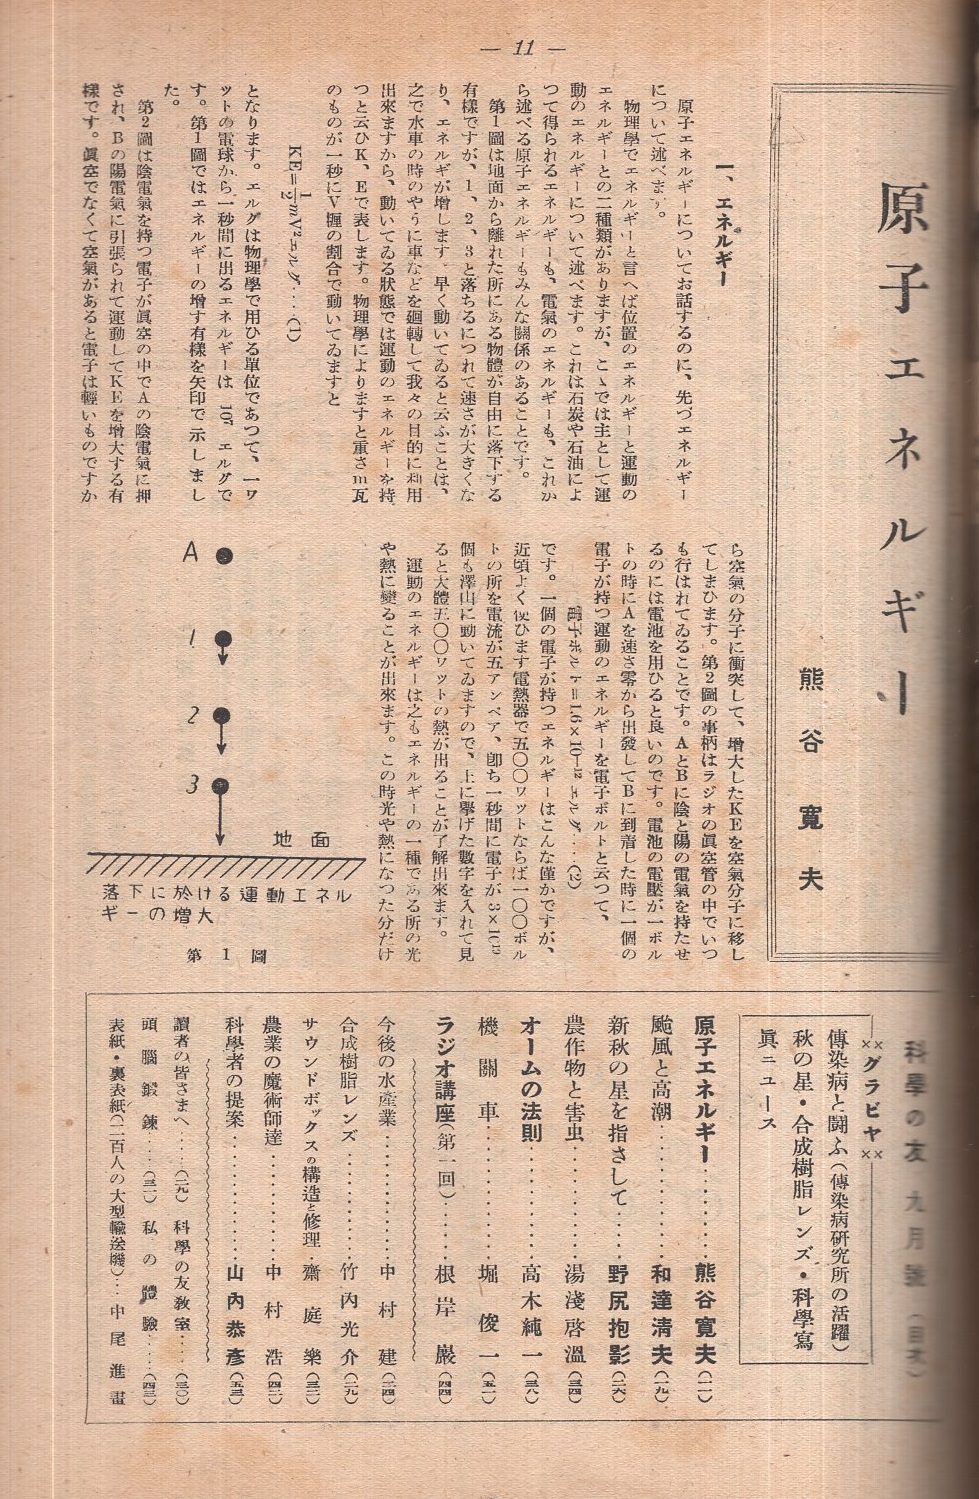 — 11 —
原子エネルギー
熊谷寛夫
一、エネルギー
原子エネルギーについてお話するのに、先づエネルギー
について述べます。
物理學でエネルギーと言へば位置のエネルギーと運動の
エネルギーとの二種類がありますが、こゝでは主として運
動のエネルギーについて述べます。これは石炭や石油によ
つて得られるエネルギーも、電氣のエネルギーも、これか
ら述べる原子エネルギーもみんな關係のあることです。
第1圖は地面から離れた所にある物體が自由に落下する
有樣ですが、1、2、3と落ちるにつれて速さが大きくな
り、エネルギが増します。早く動いてゐると云ふことは、
之で水車の時のやうに車などを廻轉して我々の目的に利用
出來ますから、動いてゐる狀態では運動のエネルギーを持
つと云ひK、Eで表します。物理學によりますと重さm瓦
のものが一秒にV糎の割合で動いてゐますと
KE=1/2mV²エルグ…(1)
となります。エルグは物理學で用ひる單位であつて、一ワ
ツトの電球から一秒間に出るエネルギーは 10⁷ エルグで
す。第1圖ではエネルギーの増す有樣を矢印で示しまし
た。
第2圖は陰電氣を持つ電子が眞空の中でAの陰電氣に押
され、Bの陽電氣に引張られて運動してKEを增大する有
樣です。眞空でなくて空氣があると電子は輕いものですか
ら空氣の分子に衝突して、增大したKEを空氣分子に移し
てしまひます。第2圖の事柄はラジオの眞空管の中でいつ
も行はれてゐることです。AとBに陰と陽の電氣を持たせ
るのには電池を用ひると良いのです。電池の電壓が一ボル
トの時にAを速さ零から出發してBに到着した時に一個の
電子が持つ運動のエネルギーを電子ボルトと云つて、
電子ボルト=1.6×10⁻¹² エルグ…(2)
です。一個の電子が持つエネルギーはこんな僅かですが、
近頃よく使ひます電熱器で五〇〇ワツトならば一〇〇ボル
トの所を電流が五アンペア、卽ち一秒間に電子が 3×10¹⁹
個も澤山に動いてゐますので、上に擧げた數字を入れて見
ると大體五〇〇ワツトの熱が出ることが了解出來ます。
運動のエネルギーは之もエネルギーの一種である所の光
や熱に變ることが出來ます。この時光や熱になつた分だけ
A
1
2
3
地面
落下に於ける運動エネル
ギーの増大
第1圖
科學の友 九月號 (目次)
××グラビヤ××
傳染病と鬪ふ(傳染病硏究所の活躍)
秋の星・合成樹脂レンズ・科學寫
眞ニュース
原子エネルギー………熊谷寛夫(一一)
颱風と高潮………和達淸夫(一九)
新秋の星を指さして……野尻抱影(二六)
農作物と害虫………湯淺啓溫(三四)
オームの法則………高木純一(三八)
機關車………堀俊一(五一)
ラジオ講座(第一回)……根岸巖(四四)
今後の水產業………中村建(二四)
合成樹脂レンズ………竹內光介(二九)
サウンドボックスの構造と修理…齋庭樂(三二)
農業の魔術師達………中村浩(四二)
科學者の提案………山內恭彥(五三)
讀者の皆さまへ……(二九) 科學の友敎室……(三〇)
頭腦鍛鍊……(三一) 私の體驗……(四三)
表紙・裏表紙(二百人の大型輸送機)…中尾進畫